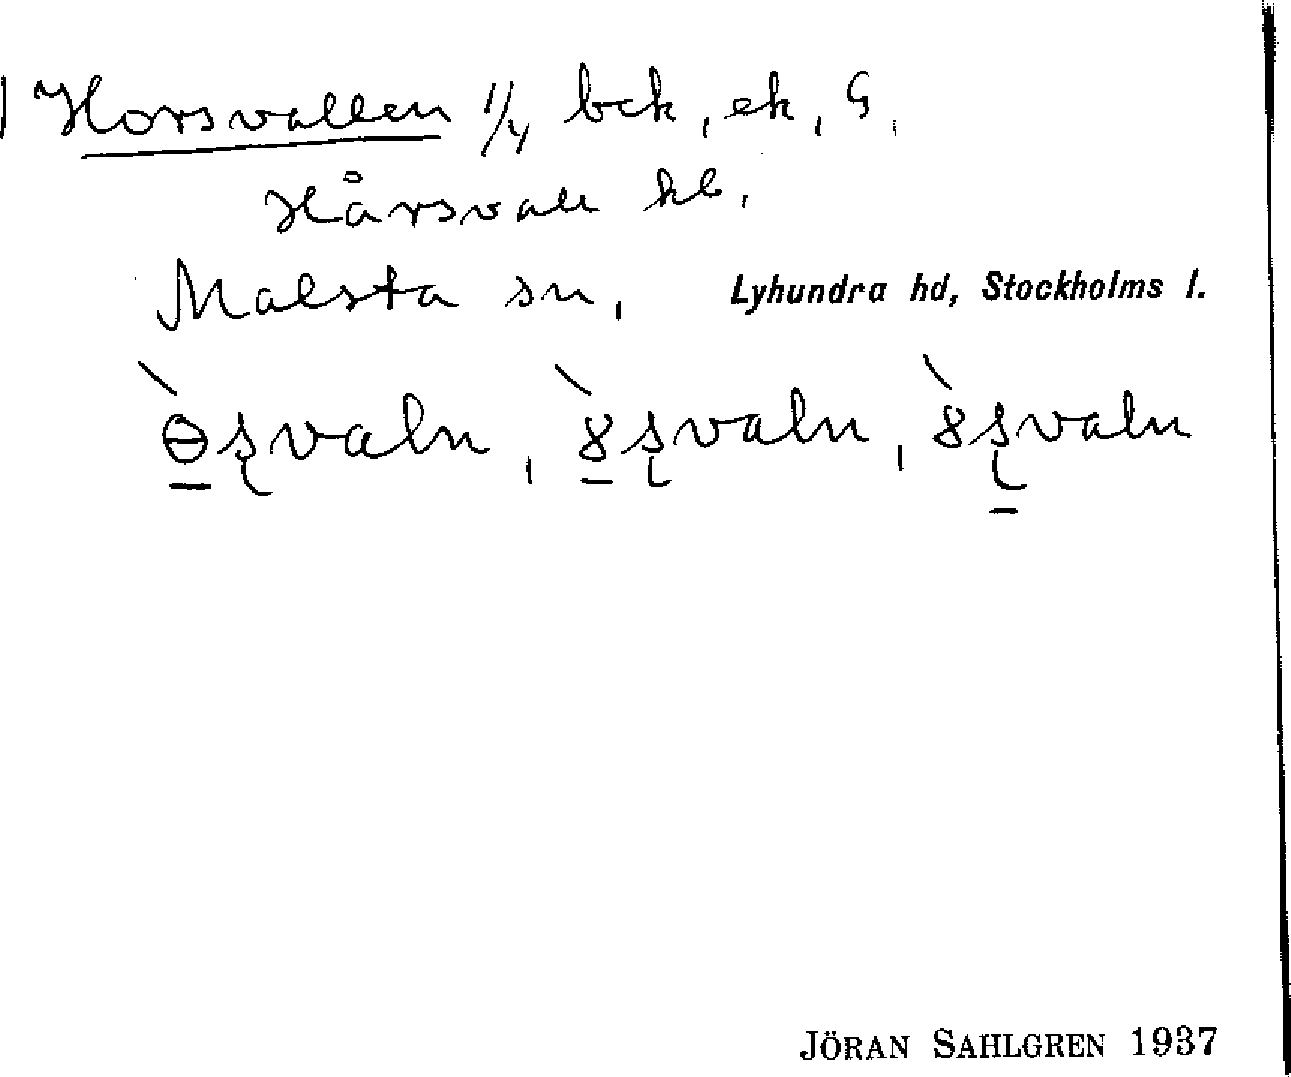 Horsvallen 1/4 bck, ek, G,
Hårsvall kb,
Malsta sn, Lyhundra hd, Stockholms l.
ˋɵʂvaln, ˋ8ʂvaln, ˋ8ʂvaln
JÖRAN SAHLGREN 1937